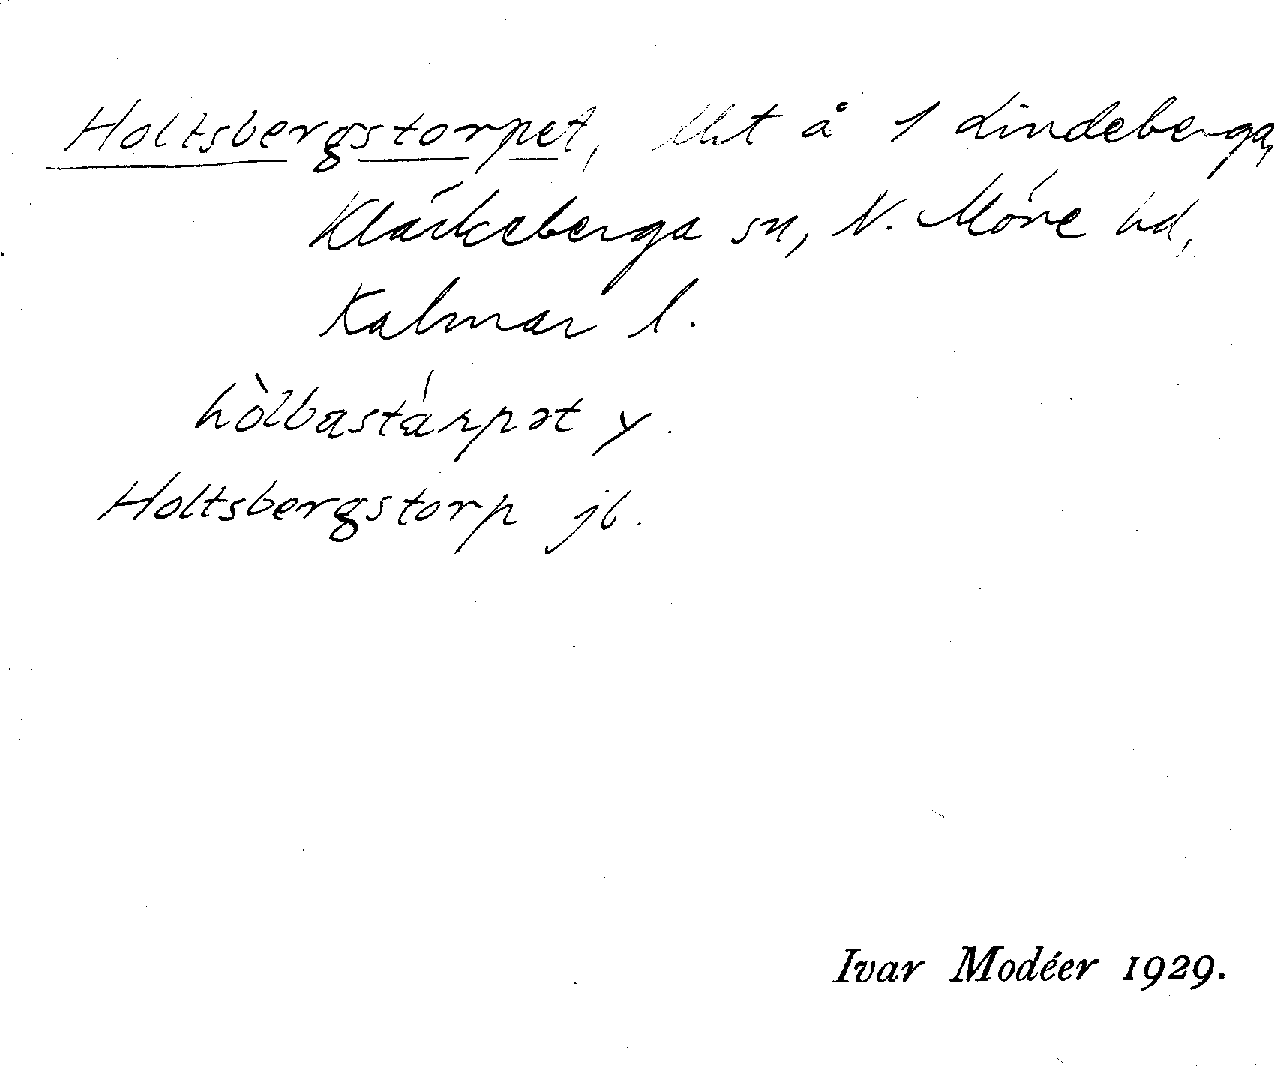 Holtsbergstorpet, lht å 1 Lindeberga,
Kläckeberga sn, N. Möre hd,
Kalmar l.
hòlbastárpət y.
Holtsbergstorp jb.
Ivar Modéer 1929.